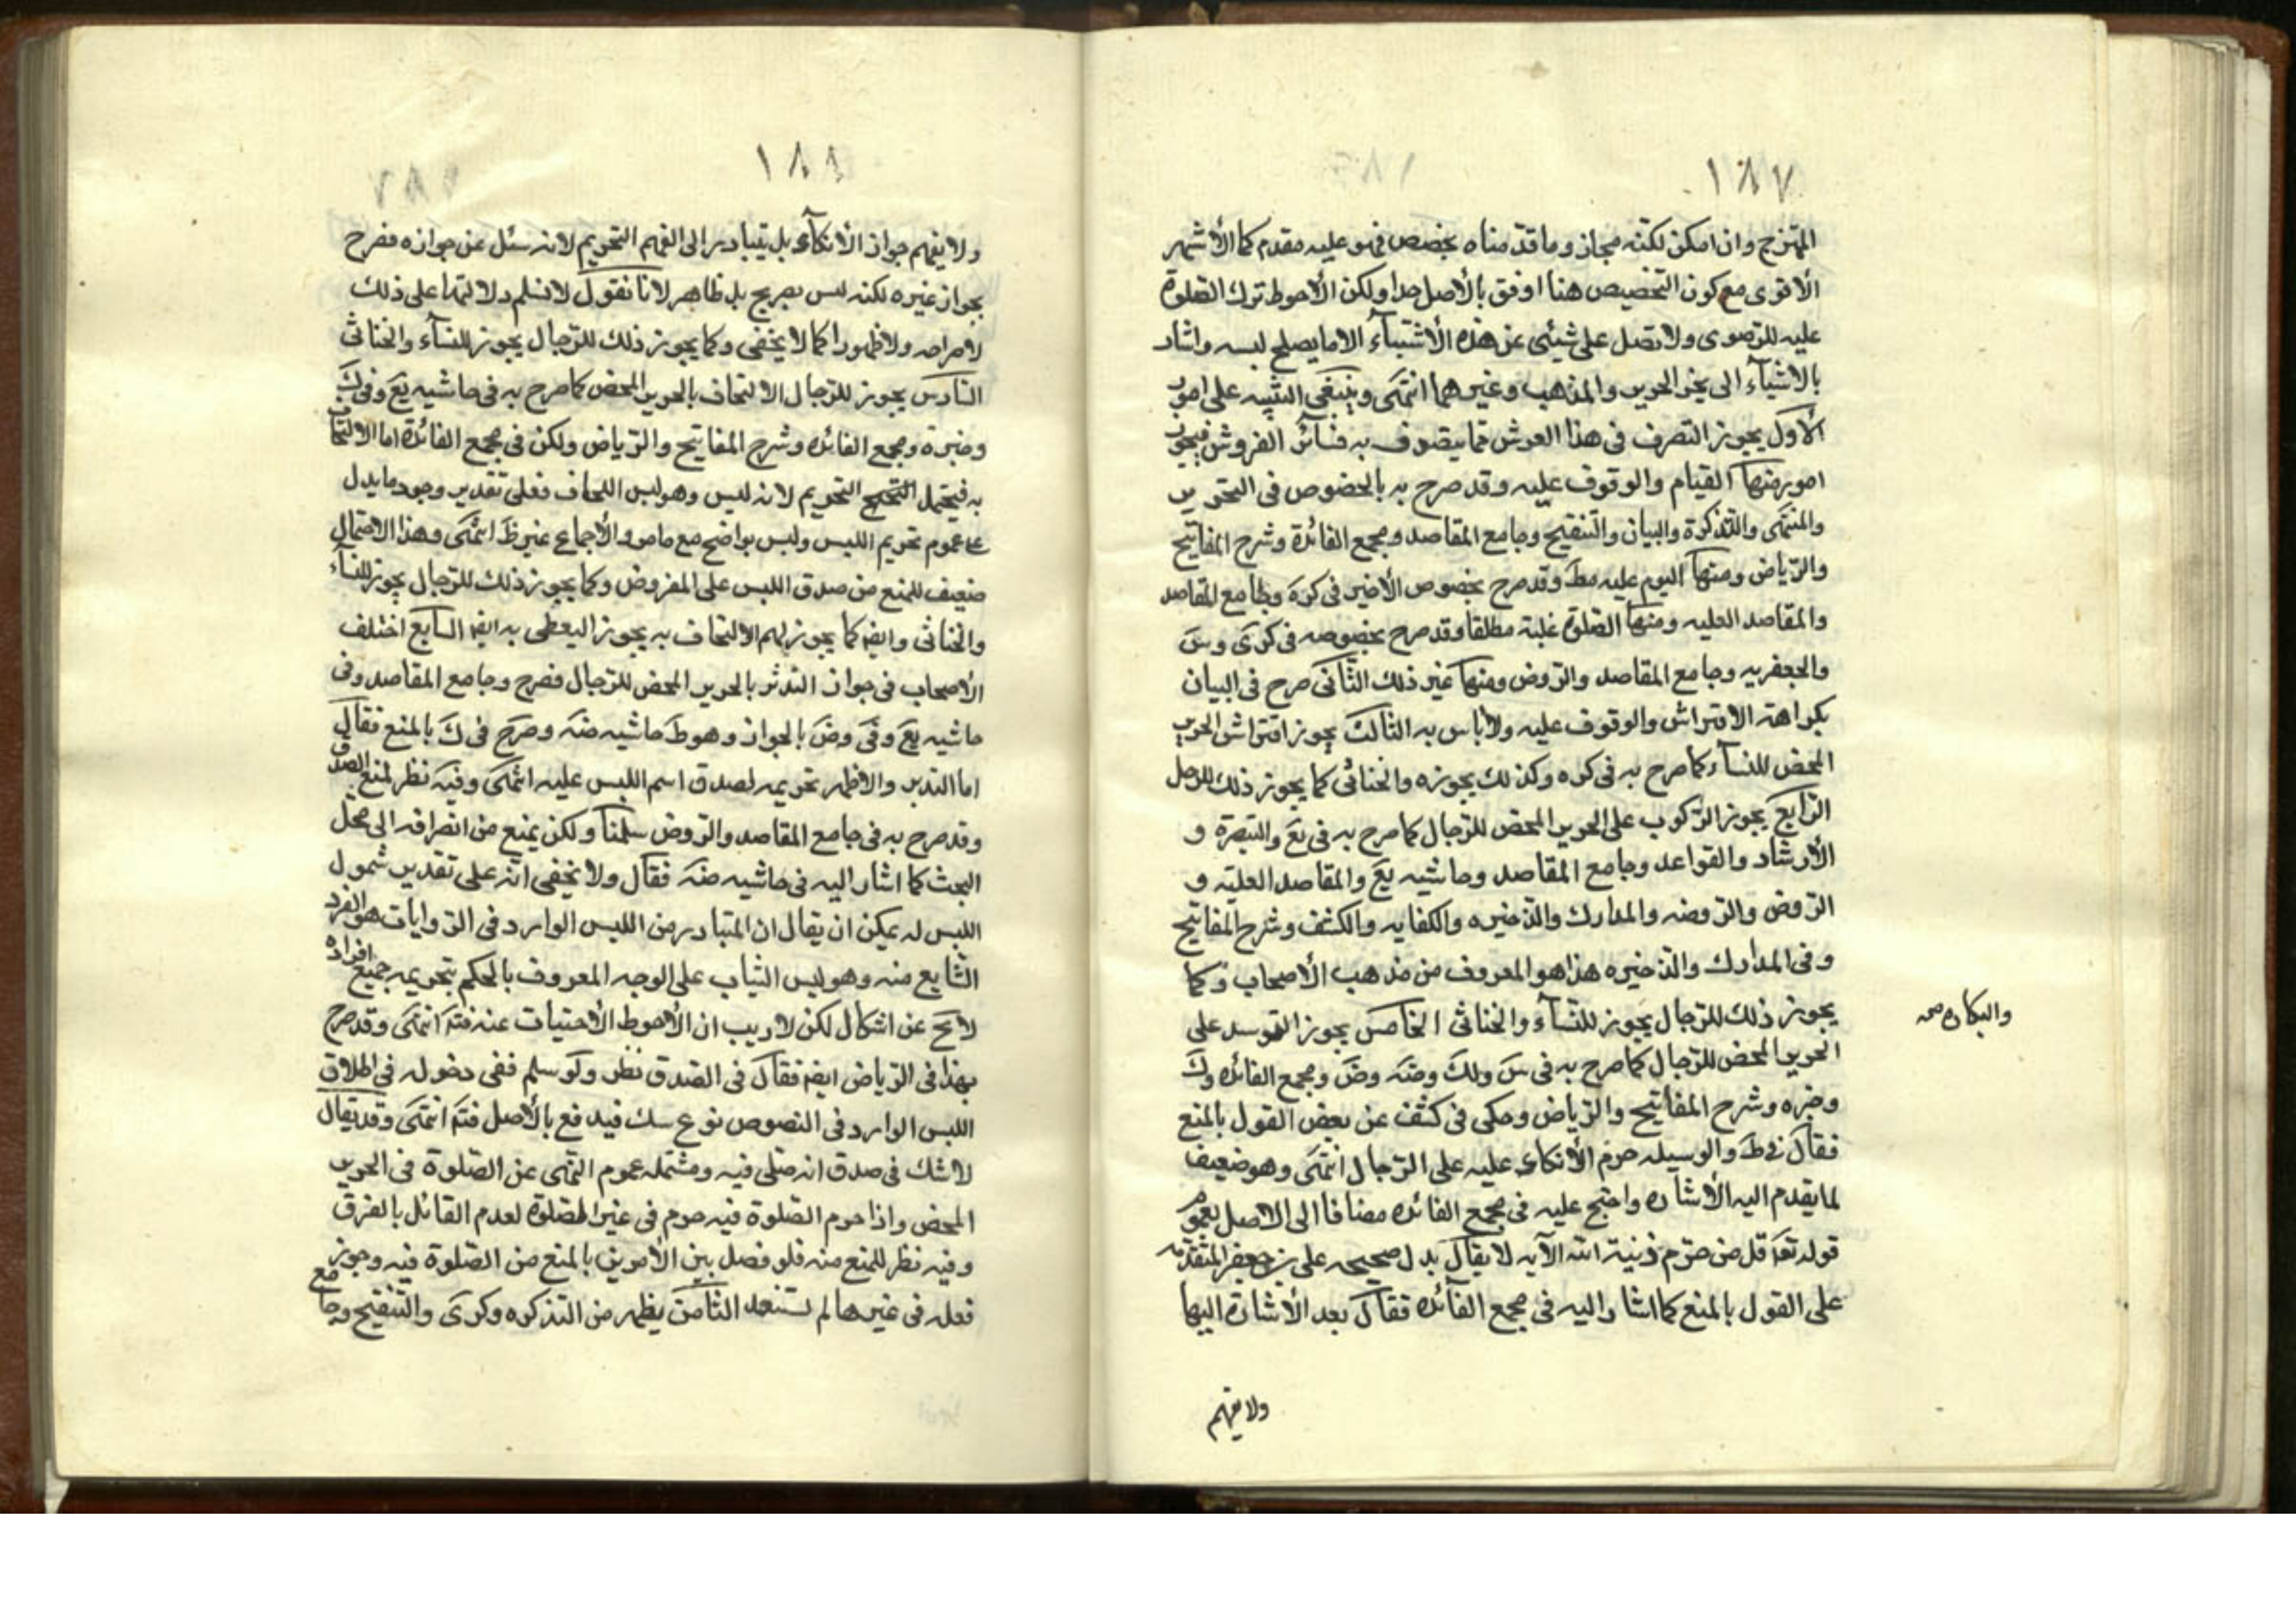 ١٨٧
الممتزج وان امكن لكنه مجاز وما قدمناه تخصيص فهو عليه مقدم كما الأشهر
الأقوى مع كون التخصيص هنا اوفق بالأصل جدا ولكن الأحوط ترك الصلوة
عليه للرضوى ولا تصل على شيئى من هذه الأشياء الا ما يصلح لبسه واشار
بالاشياء الى نحو الحرير والمذهب وغيرهما انتهى وينبغى التنبيه على امور
الأول يجوز التصرف فى هذا الفرش مما يتصرف به فى سائر الفروش فيجوز
امور منها القيام والوقوف عليه وقد صرح به بالخصوص فى التحرير
والمنتهى والتذكرة والبيان والتنقيح وجامع المقاصد ومجمع الفائدة وشرح المفاتيح
والرياض ومنها النوم عليه مط وقد صرح بخصوص الأخير فى كره وجامع المقاصد
والمقاصد العليه ومنها الصلوة عليه مطلقا وقد صرح بخصوصه فى كرى وس
والجعفريه وجامع المقاصد والروض ومنها غير ذلك الثانى صرح فى البيان
بكراهة الافتراش والوقوف عليه ولا باس به الثالث يجوز افتراش الحرير
المحض للنسآء كما صرح به فى كره وكذلك يجوزه والخناثى كما يجوز ذلك للرجل
الرابع يجوز الركوب على الحرير المحض للرجال كما صرح به فى يع والتبصرة و
الأرشاد والقواعد وجامع المقاصد وحاشيه يع والمقاصد العليه و
الروض والروضه والمدارك والذخيره والكفايه والكشف وشرح المفاتيح
وفى المدارك والذخيره هذا هو المعروف من مذهب الأصحاب وكما
يجوز ذلك للرجال يجوز للنسآء والخناثى الخامس يجوز التوسد على
الحرير المحض للرجال كما صرح به فى س ولك وضه وض ومجمع الفائده وك
وخيره وشرح المفاتيح والرياض وحكى فى كشف عن بعض القول بالمنع
فقال فى ط والوسيله حرم الأتكاء عليه على الرجال انتهى وهو ضعيف
لما يقدم اليه الأشاره واحتج عليه فى مجمع الفائده مضافا الى الاصل بعموم
قوله تعه قل من حرم زينة الله الآيه لا يقال يدل صحيحه على بن جعفر المتقدمه
على القول بالمنع كما اشار اليه فى مجمع الفائده فقال بعد الأشارة اليها
ولا يفهم
١٨٨
ولا يفهم جواز الأتكآء بل يتبادر الى الفهم التحريم لانه سئل عن جوازه فصرح
بجواز غيره لكنه ليس بصريح بل ظاهر لانا نقول لا نسلم دلالتها على ذلك
لا صراحه ولا ظهورا كما لا يخفى وكما يجوز ذلك للرجال يجوز للنسآء والخناثى
السادس يجوز للرجال الالتحاف بالحرير المحض كما صرح به فى حاشيه يع وفى ك
وخيره ومجمع الفائده وشرح المفاتيح والرياض ولكن فى مجمع الفائدة اما الالتحاف
به فيحتمل التحريم لانه ليس وهو لبس اللحاف فعلى تقدير وجود ما يدل
على عموم تحريم اللبس وليس بواضح مع ما مر والأجماع غير ظ انتهى وهذا الاحتمال
ضعيف للمنع من صدق اللبس على المفروض وكما يجوز ذلك للرجال يجوز للنسآء
والخناثى وايضا كما يجوز لهم الالتحاف به يجوز التغطى به ايضا السابع اختلف
الأصحاب فى جواز التدثر بالحرير المحض للرجال فصرح وجامع المقاصد وفى
حاشيه يع وفى وض بالجواز وهو ط حاشيه ضه وصرح فى ك بالمنع فقال
اما التدثر والاظهر تحريمه لصدق اسم اللبس عليه انتهى وفيه نظر لمنع الصدق
وقد صرح به فى جامع المقاصد والروض سلمنا ولكن يمنع من انصرافه الى محل
البحث كما اشار اليه فى حاشيه ضه فقال ولا يخفى انه على تقدير شمول
اللبس له يمكن ان يقال ان المتبادر من اللبس الوارد فى الروايات هو الفرد
الشايع منه وهو لبس الثياب على الوجه المعروف بالحكم بتحريمه جميع افراده
لا يخ عن اشكال لكن لا ريب ان الأحوط الأجتناب عنه فتم انتهى وقد صرح
بهذا فى الرياض ايضا فقال فى الصدق نظر ولو سلم ففى دخوله فى اطلاق
اللبس الوارد فى النصوص نوع شك فيدفع بالأصل فتم انتهى وقد يقال
لا شك فى صدق انه صلى فيه ومشتمله عموم النهى عن الصلوة فى الحرير
المحض واذا حرم الصلوة فيه حرم فى غير الصلوة لعدم القائل بالفرق
وفيه نظر للمنع منه فلو فصل بين الأمرين بالمنع من الصلوة فيه وجوز
فعله فى غيرها لم نستبعد الثامن يظهر من التذكره وكرى والتنقيح وجامع